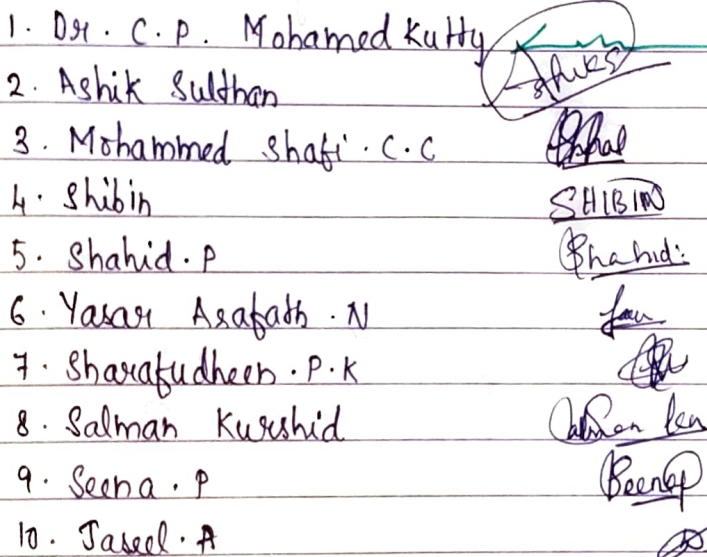 1. Dr. C. P. Mohamed Kutty
2. Ashik Sulthan
3. Mohammed Shafi. C.C
4. Shibin SHIBIN
5. Shahid. P Shahid
6. Yasar Arafath. N
7. Sharafudheen. P. K
8. Salman Kurshid
9. Seena. P
10. Jaseel. A